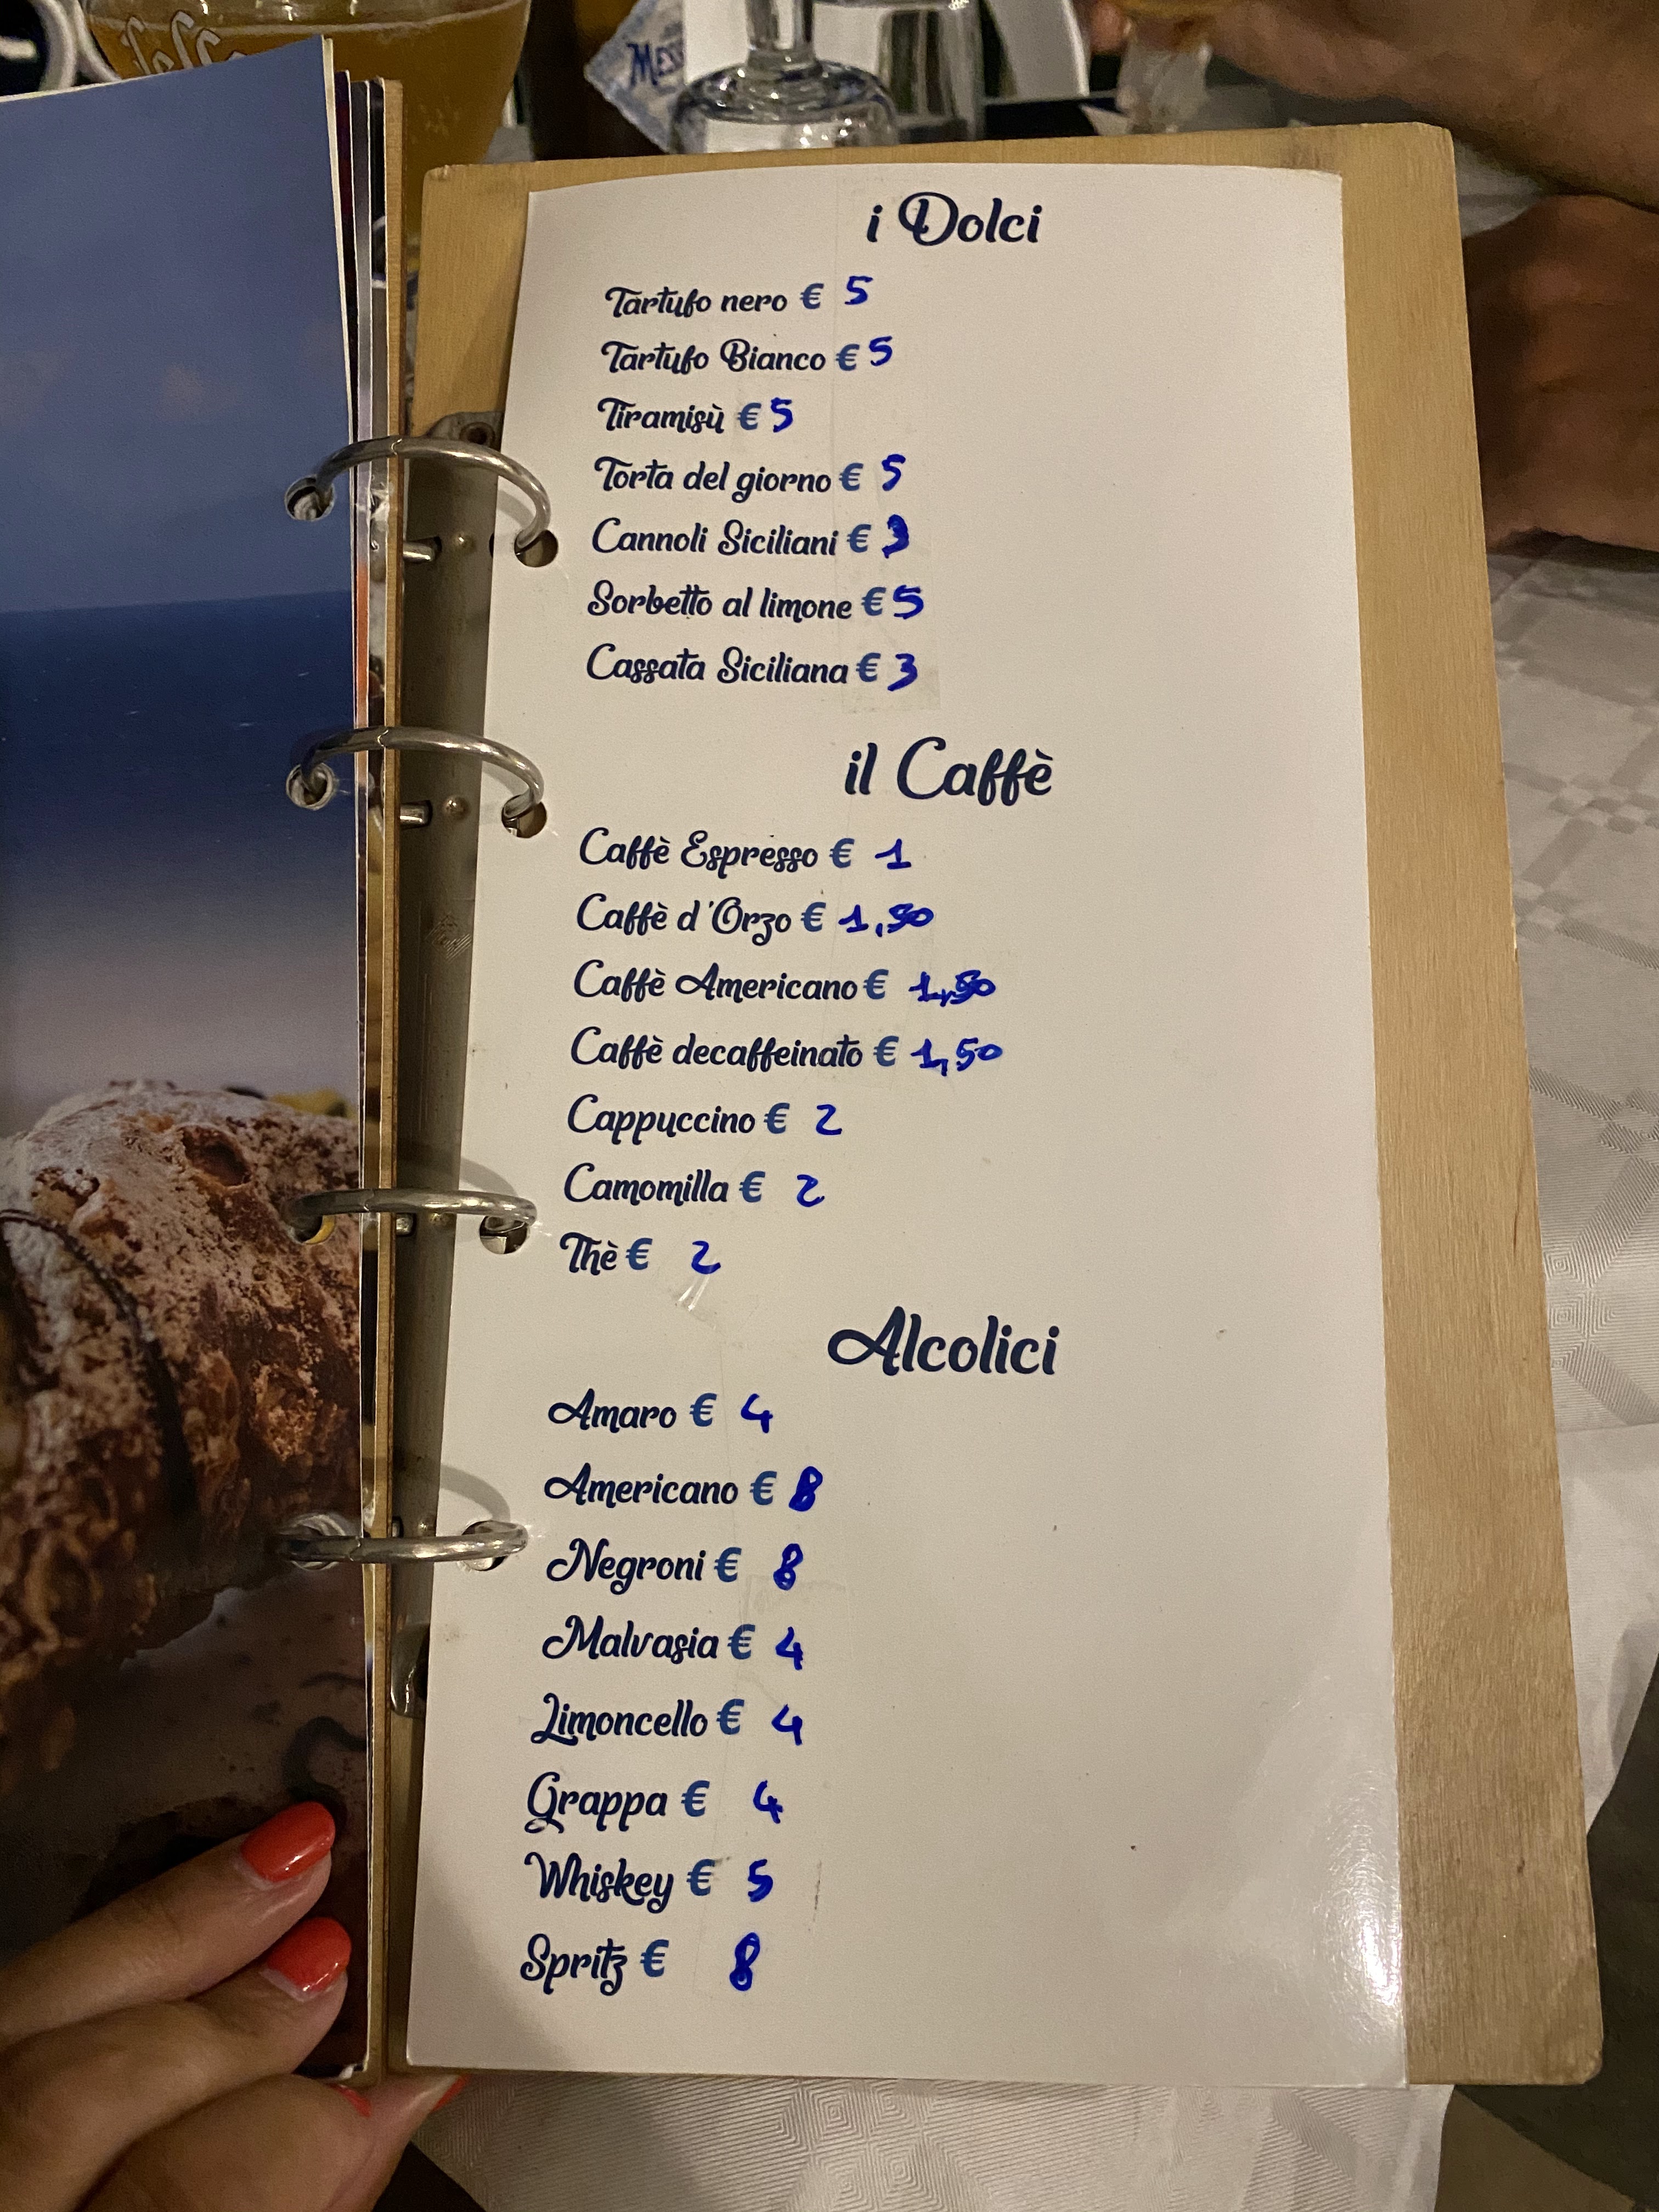 Mess
i Dolci
Tartufo nero € 5
Tartufo Bianco € 5
Tiramisù € 5
Torta del giorno € 5
Cannoli Siciliani € 3
Sorbetto al limone € 5
Cassata Siciliana € 3
il Caffè
Caffè Espresso € 1
Caffè d'Orzo € 1,50
Caffè Americano € 1,50
Caffè decaffeinato € 1,50
Cappuccino € 2
Camomilla € 2
Thè € 2
Alcolici
Amaro € 4
Americano € 8
Negroni € 8
Malvasia € 4
Limoncello € 4
Grappa € 4
Whiskey € 5
Spritz € 8